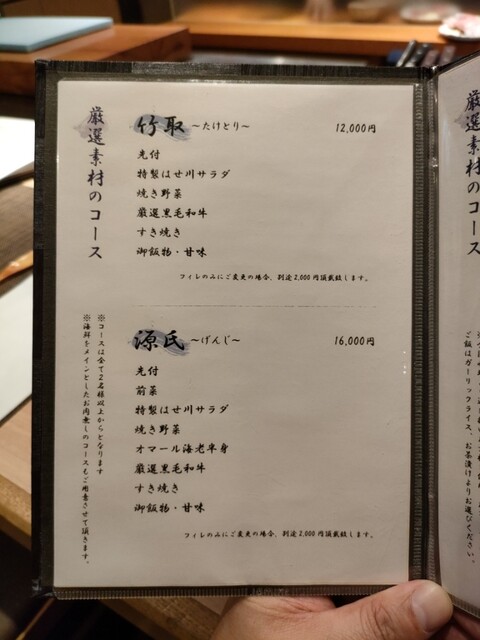 厳選素材のコース
竹取 ～たけとり～ 12,000円
先付
特製はせ川サラダ
焼き野菜
厳選黒毛和牛
すき焼き
御飯物・甘味
フィレのみにご変更の場合、別途2,000円頂戴致します。
源氏 ～げんじ～ 16,000円
先付
前菜
特製はせ川サラダ
焼き野菜
オマール海老半身
厳選黒毛和牛
すき焼き
御飯物・甘味
フィレのみにご変更の場合、別途2,000円頂戴致します。
※コースは全て2名様以上からとなります
※海鮮をメインとしたお肉無しのコースもご用意させて頂きます。
厳選素材のコース
ご飯はガーリックライス、お茶漬けよりお選びください。